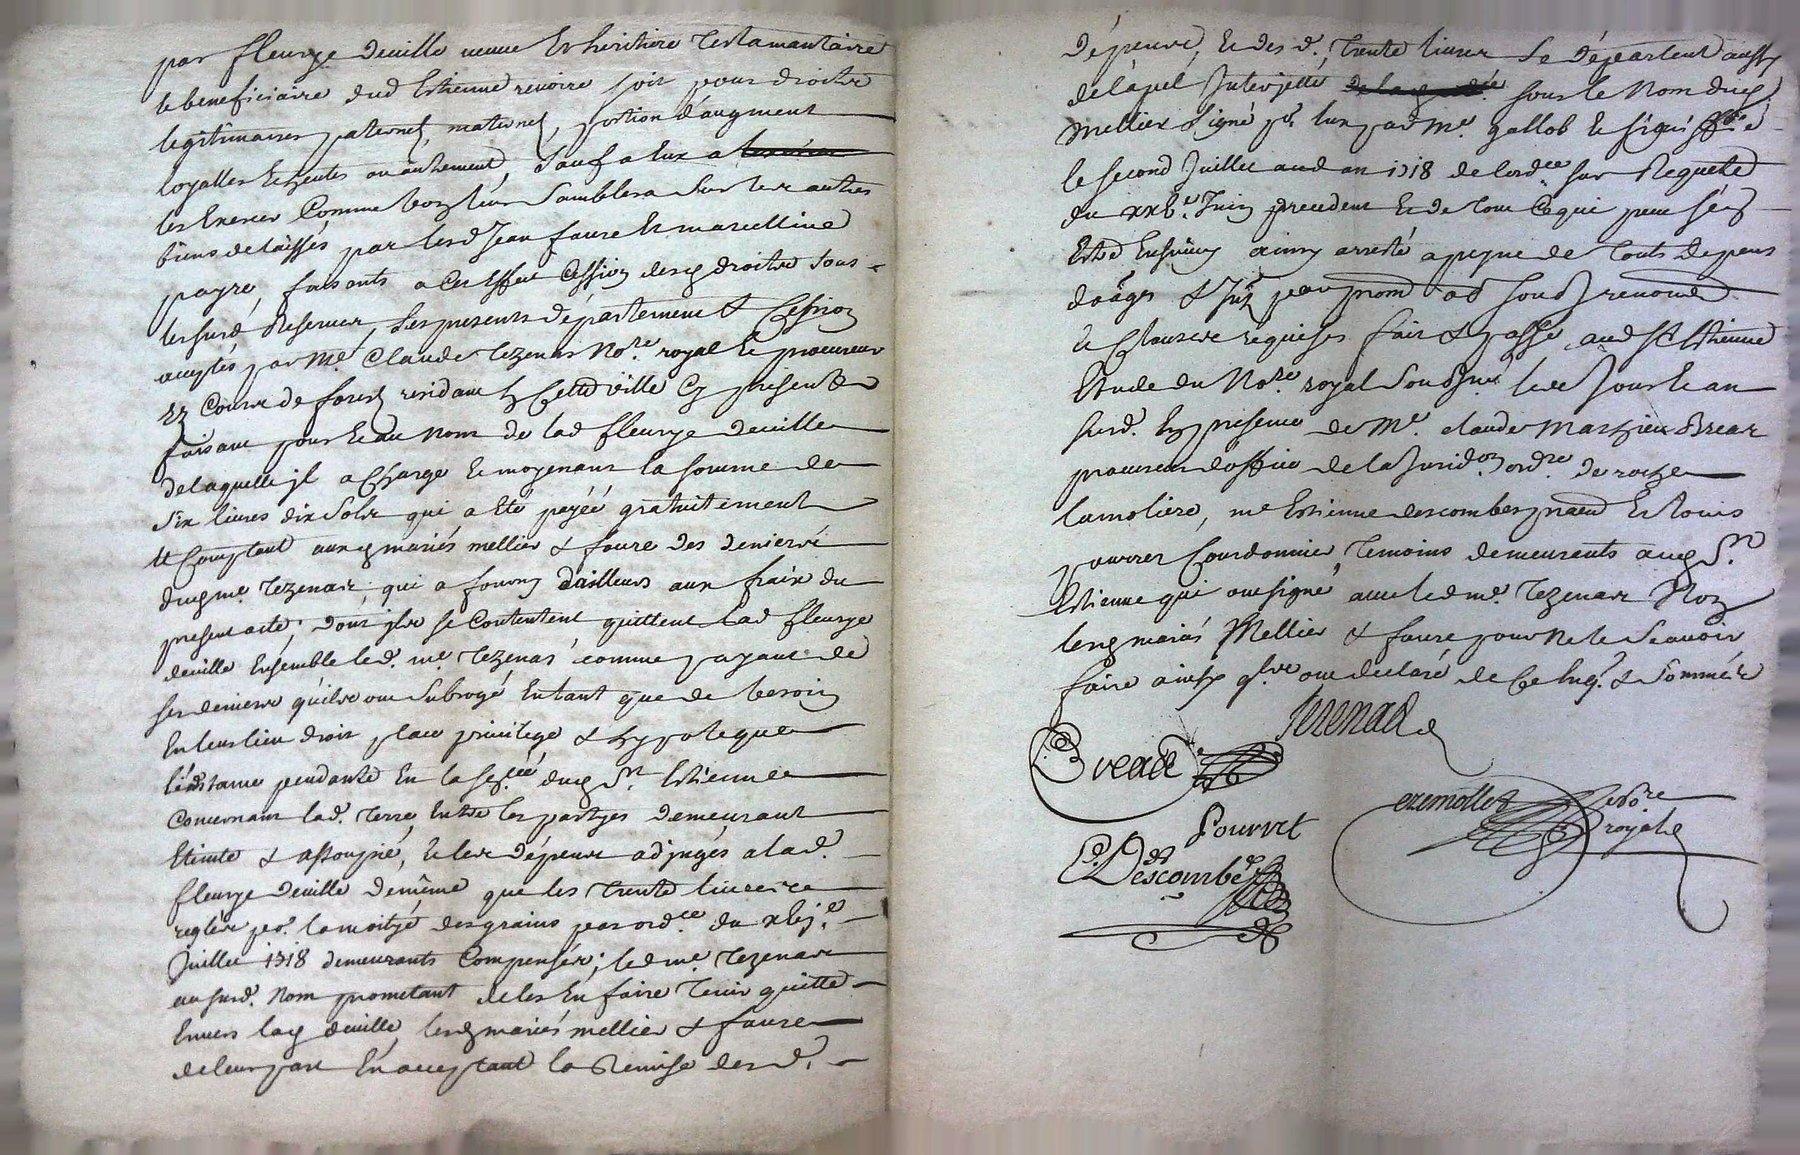 par fleurye deville veuve & heritiere Testamantaire
& beneficiaire dud Estienne revoire soit pour droits
legitimaires paternel, maternel, portion d'augment
loyalles echeutes ou autrement, sauf a eux a
les exercer comme bon leur semblera sur les autres
biens delaissés par lesd Jean faure & marcelline
payre, faisants a cet effet cession desq droits sous
les susd reserves, les presents département & cession
acceptés par Me. Claude Tezenas No.re royal & procureur
ez cours de forest residant en cette ville cy present
faisant pour & au nom de lad fleurye deville
de laquelle jl a charge & moyenant la somme de
six livres dix sols qui a eté payéé gratuitement
& comptant auxq mariés mellier & faure des deniers
duq me. Tezenas qui a fourny d'ailleurs aux fraix du
present acte; dont jls se contentent quittent lad fleurye
deville ensemble led. me. Tezenas comme payant de
ses deniers quils ont subrogé entant que de besoin
en leur lieu droit place privilege & hypoteque
l'instance pendante en la sen.cée duq St. Estienne
concernant lad. Terre entre les partyes demeurant
eteinte & assoupie, & les dépens adjugés a lad.
fleurye deville demême que les trente livres
reglés po. la moityé des grains par ord.ce du xbj.e
Juillet 1718 demeurants compensés; led me. Tezenas
au susd. nom prometant de les en faire tenir quitte
envers laq deville, lesq mariés mellier & faure
de leur part en acceptant la remise desd.
dépens, & des d. trente livres se départent aussy
de l'apel interjetté sous le nom duq
mellier signé po. eux par me. gallob & signiffié
le second Juillet aud an 1718 de lord.ce sur Requete
du xxb.e Juin precedent & de tout ce qui peut s'en
estre ensuivy ainsy arresté a peyne de touts depens
&
& clauses requises fait & passé aud St Estienne
Etude du No.re royal soussigné lesd Jour & an
susd. en presence de Me. claude Mathieu Breat
procureur d'office de la Jurid.on ord.re de roche
lamoliere, me Estienne descombes praticien & Louis
pourret Cordonnier, Temoins demeurants auq St.
Estienne qui ont signé avec led me. Tezenas Non
lesq mariés Mellier & faure pour ne le scavoir
faire ainsy qu'ils ont declaré de ce enq. & sommés
Tezenas
Breat
eremollet No.re
royal
Pourret
E. Descombes